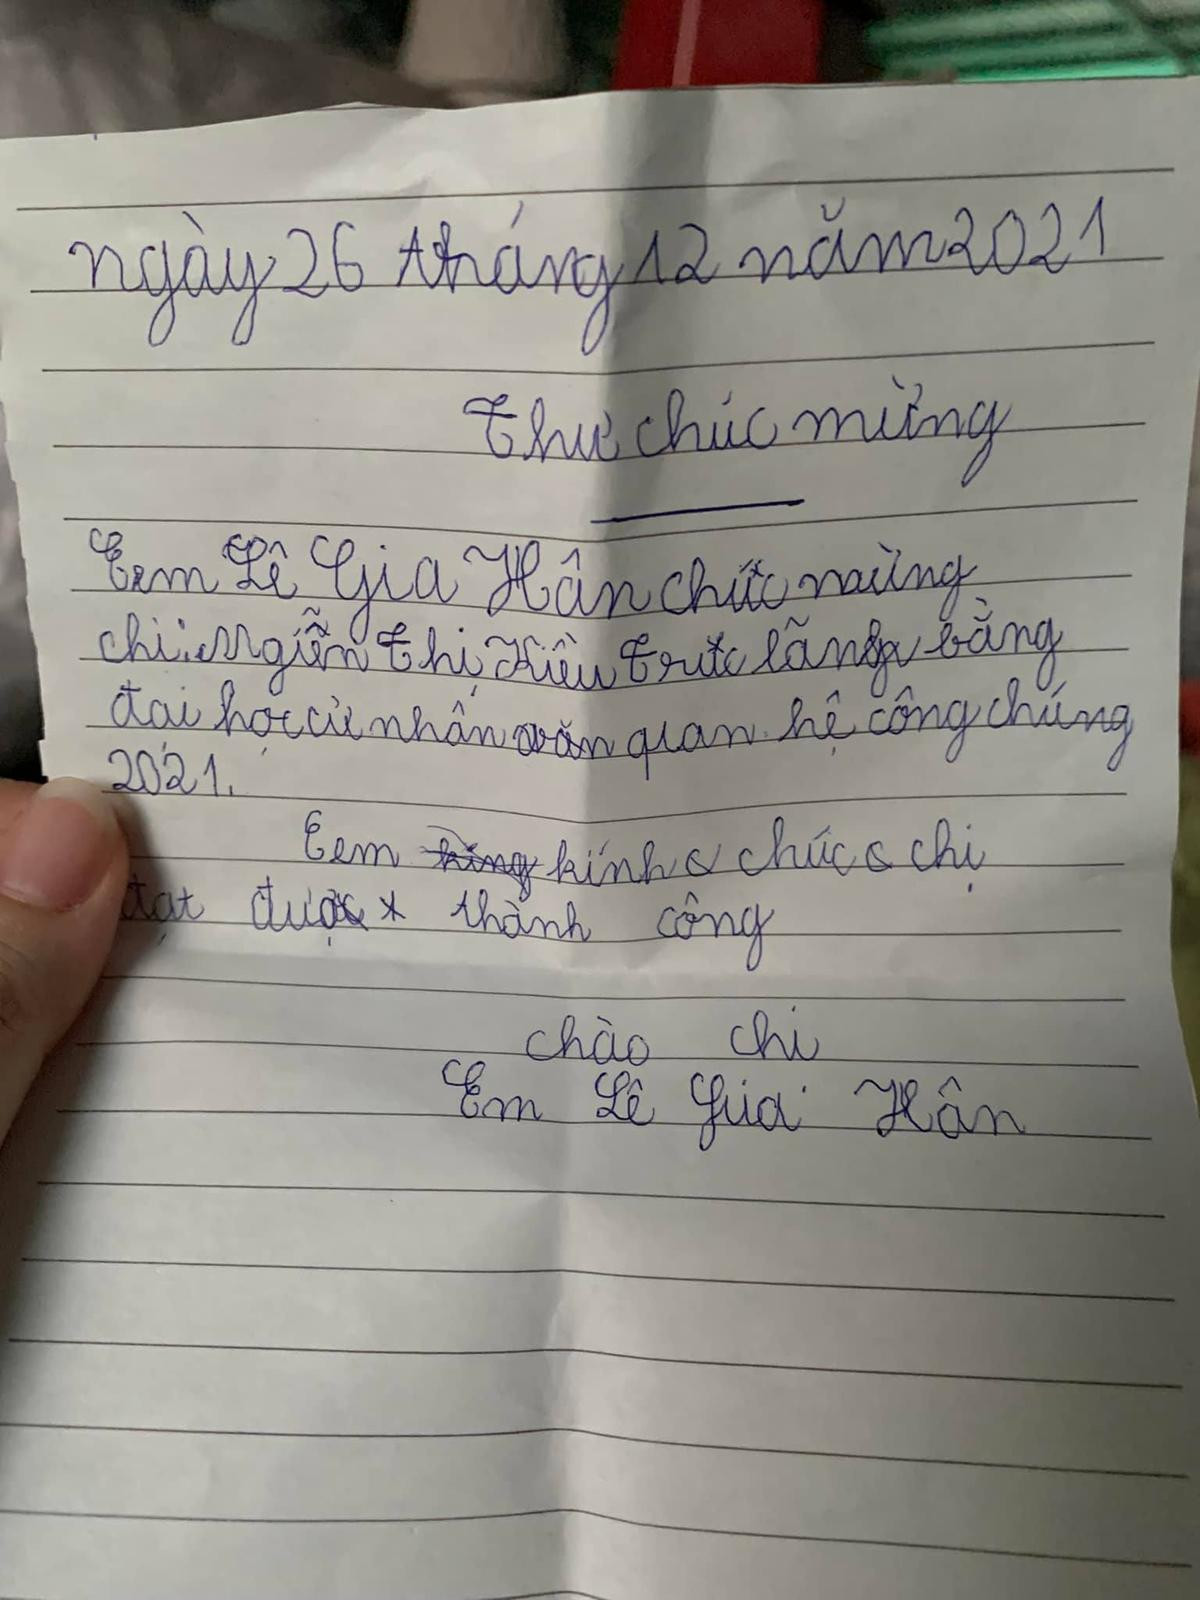 ngày 26 tháng 12 năm 2021
Thư chúc mừng
Eem Lê Gia Hân chúc mừng
chị: Ngiễn Thị Kiều Trúc lãnh bằng
đại học cử nhân văn quan hệ công chúng
2021.
Eem kính chúc chị
đạt được thành công
chào chị
Em Lê Gia Hân